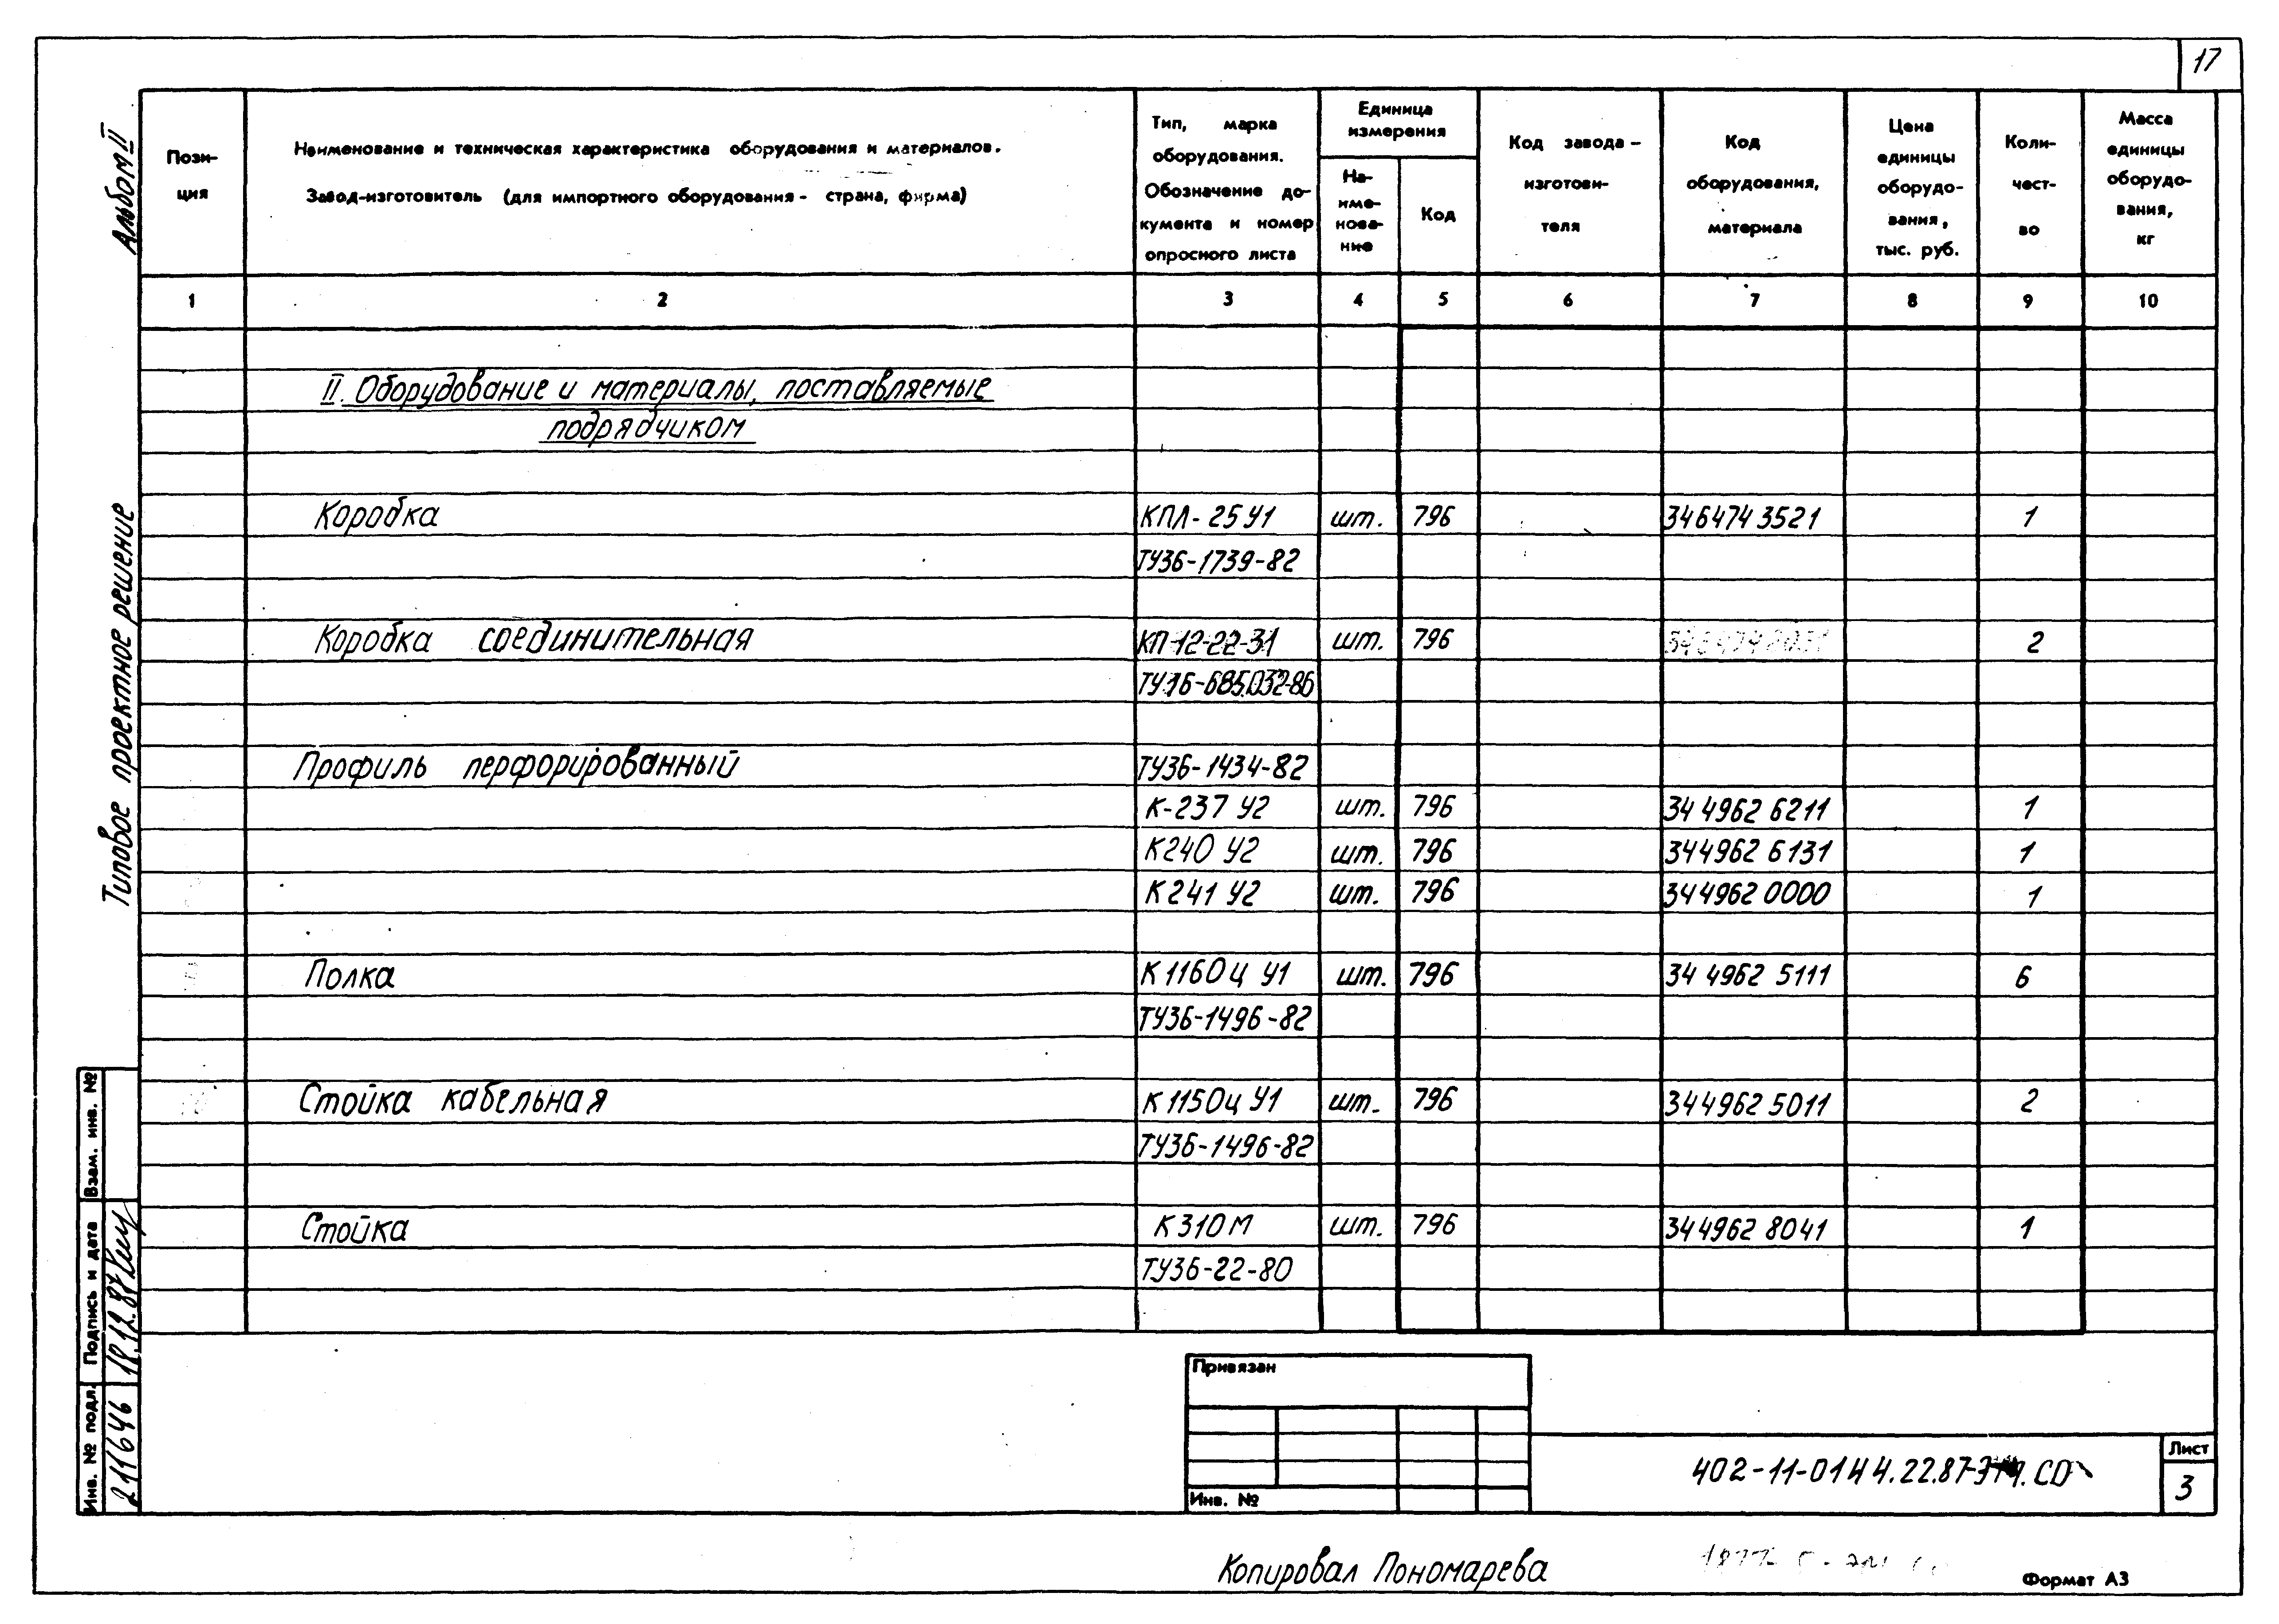 17
Альбом II
Типовое проектное решение
Пози-
ция
Наименование и техническая характеристика оборудования и материалов.
Завод-изготовитель (для импортного оборудования - страна, фирма)
Тип, марка
оборудования.
Обозначение до-
кумента и номер
опросного листа
Единица
измерения
На-
име-
нова-
ние
Код
Код завода -
изготови-
теля
Код
оборудования,
материала
Цена
единицы
оборудо-
вания,
тыс. руб.
Коли-
чест-
во
Масса
единицы
оборудо-
вания,
кг
1 2 3 4 5 6 7 8 9 10
II. Оборудование и материалы, поставляемые
подрядчиком
Коробка КПЛ-25У1 шт. 796 346474 3521 1
ТУ36-1739-82
Коробка соединительная КП-12-22-31 шт. 796 2
ТУ16-685.032-86
Профиль перфорированный ТУ36-1434-82
К-237 У2 шт. 796 34 4962 6211 1
К240 У2 шт. 796 344962 6131 1
К241 У2 шт. 796 344962 0000 1
Полка К1160ц У1 шт. 796 34 4962 5111 6
ТУ36-1496-82
Стойка кабельная К1150ц У1 шт. 796 344962 5011 2
ТУ36-1496-82
Стойка К310М шт. 796 344962 8041 1
ТУ36-22-80
Взам. инв. №
Подпись и дата
18.12.87
Инв. № подл.
2111646
Привязан
Инв. №
402-11-0144.22.87-ЭМ.СО
Лист
3
Копировал Пономарева
Формат А3